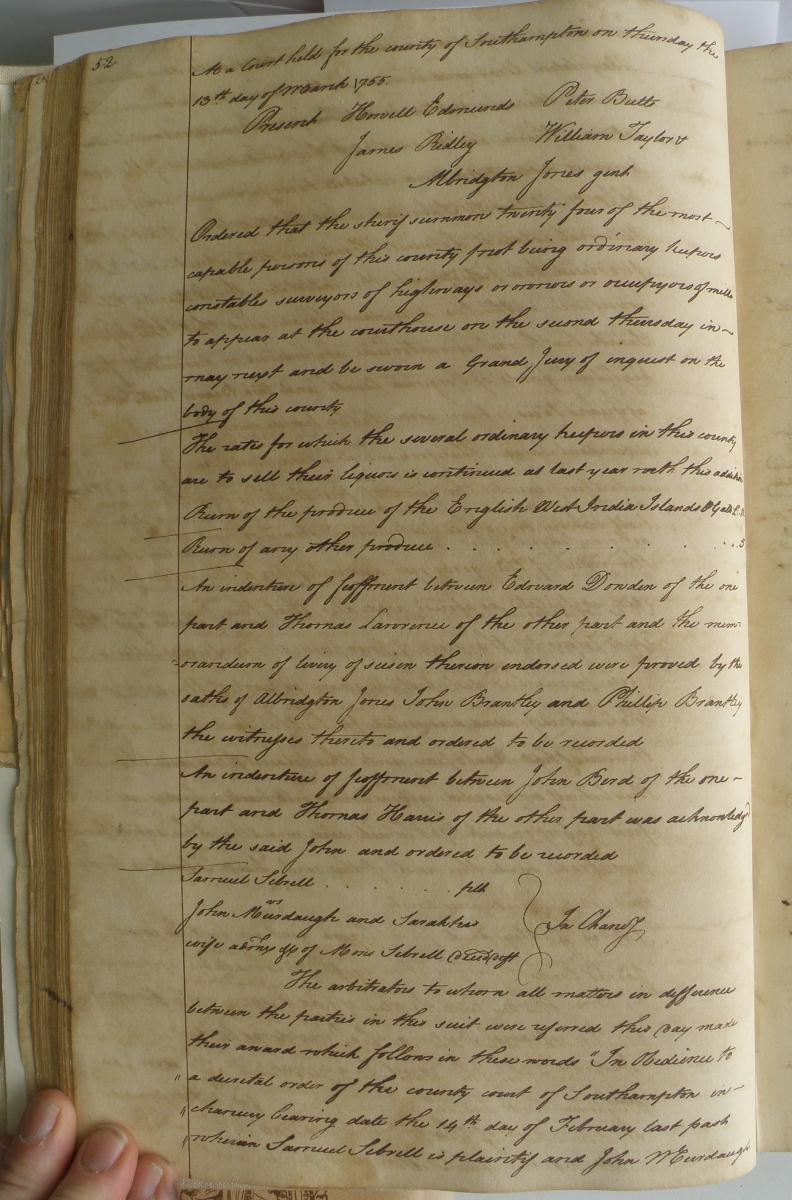 52
At a Court held for the county of Southampton on thursday the
13th day of March 1755.
Present Howell Edmunds Peter Butts
James Ridley William Taylor &
Albridgton Jones gent
Ordered that the sherif summon twenty four of the most
capable persons of this county (not being ordinary keepers
constables surveyors of highways or owners or occupyers of mills
to appear at the courthouse on the second thursday in
may next and be sworn a Grand Jury of inquest on the
body of this county
The rates for which the several ordinary keepers in this county
are to sell their liquors is continued as last year with this addition
Rum of the produce of the English West India Islands
Rum of any other produce . . . . . . . 5
An indenture of feoffment between Edward Dowden of the one
part and Thomas Lawrence of the other part and the mem-
-orandum of livery of seisen thereon endorsed were proved by the
oaths of Albridgton Jones John Brantley and Phillip Brantley
the witnesses thereto and ordered to be recorded
An indenture of feoffment between John Berd of the one
part and Thomas Harris of the other part was acknowledgd
by the said John and ordered to be recorded
Samuel Sebrell . . . . . plt
John Murdaugh and Sarah his
wife &c of Sebrell
In Chancy
The arbitrators to whom all matters in difference
between the parties in this suit were referred this day made
their award which follows in these words "In Obedience to
" a decretal order of the county court of Southampton in
" chancery bearing date the 14th day of February last past
" wherein Samuel Sebrell is plaintif and John Murdaugh